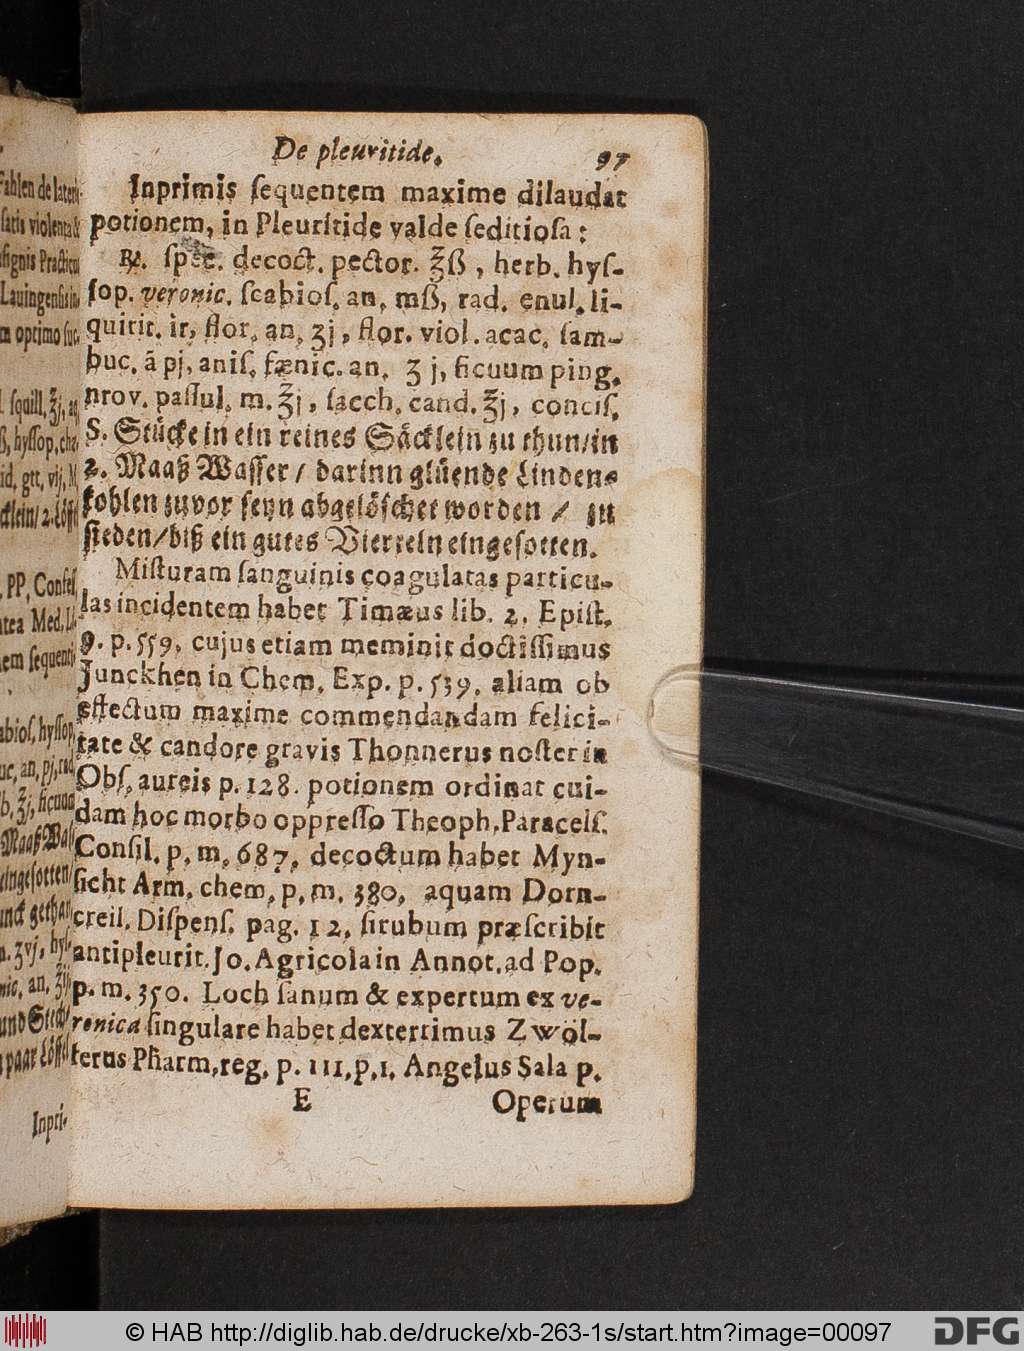 De pleuritide. 97
Inprimis ſequentem maxime dilaudat
potionem, in Pleuritide valde ſeditioſa:
℞. ſpec. decoct. pector. ℥ß, herb. hyſ-
ſop. veronic. ſcabioſ. an, mß, rad. enul. li-
quirit. ir, flor. an, ʒj, flor. viol. acac. ſam-
buc. ā pj, aniſ. fænic. an. ʒ j, ficuum ping.
nrov. paſſul. m. ℥j, ſacch. cand. ℥j, conciſ.
S. Stücke in ein reines Säcklein zu thun/in
2. Maaß Waſſer / darinn glüende Linden-
kohlen zuvor ſeyn abgelöſchet worden / zu
ſieden/biß ein gutes Viertein eingeſotten.
Miſturam ſanguinis coagulatas particu-
las incidentem habet Timæus lib. 2. Epiſt.
9. p. 559, cujus etiam meminit doctiſſimus
Junckhen in Chem. Exp. p. 539. aliam ob
effectum maxime commendandam felici-
tate & candore gravis Thonnerus noſter in
Obſ. aureis p. 128. potionem ordinat cui-
dam hoc morbo oppreſſo Theoph. Paracelſ.
Conſil. p. m. 687, decoctum habet Myn-
ſicht Arm. chem. p. m. 380, aquam Dorn-
creil. Diſpenſ. pag. 12, ſirubum præſcribit
antipleurit. Jo. Agricola in Annot. ad Pop.
p. m. 350. Loch ſanum & expertum ex ve-
ronica ſingulare habet dexterrimus Zwöl-
ferus Pharm. reg. p. 111. p. 1. Angelus Sala p.
E Operum
Inpri-
© HAB http://diglib.hab.de/drucke/xb-263-1s/start.htm?image=00097
DFG